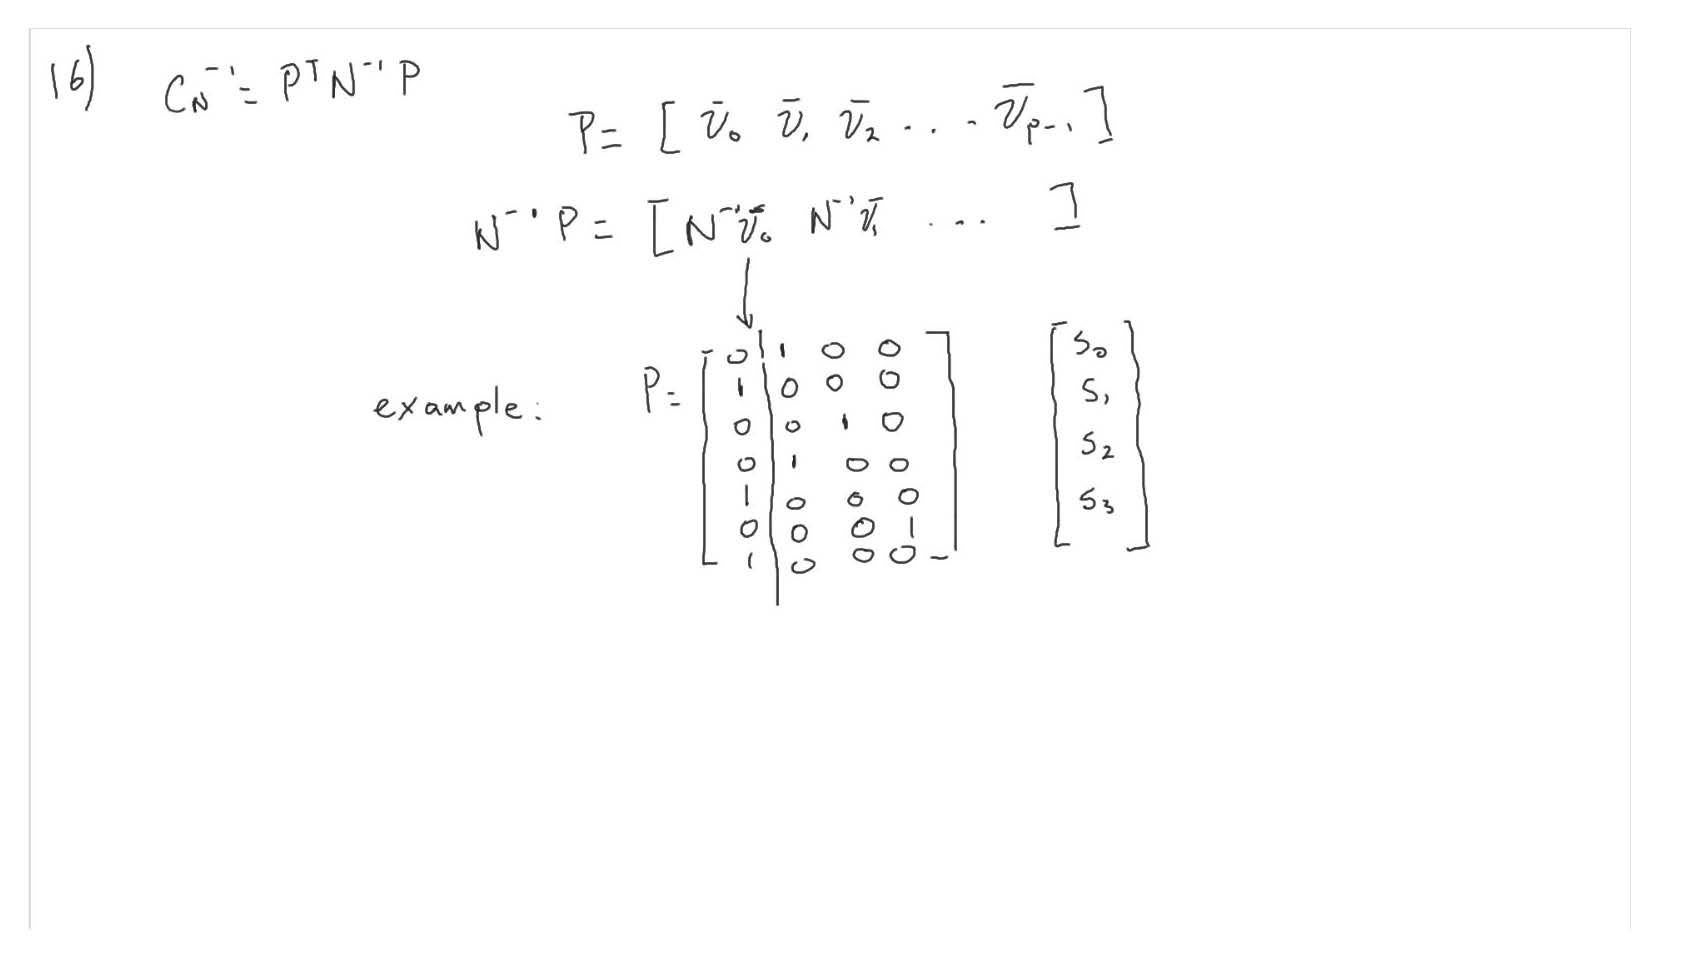 16) C_N⁻¹ = Pᵀ N⁻¹ P
P = [ v̄₀ v̄₁ v̄₂ . . . . v̄ₚ₋₁ ]
N⁻¹ P = [ N⁻¹v̄₀ N⁻¹v̄₁ . . . ]
example: P =
0 1 0 0 s₀
1 0 0 0 s₁
0 0 1 0 s₂
0 1 0 0 s₃
1 0 0 0
0 0 0 1
1 0 0 0